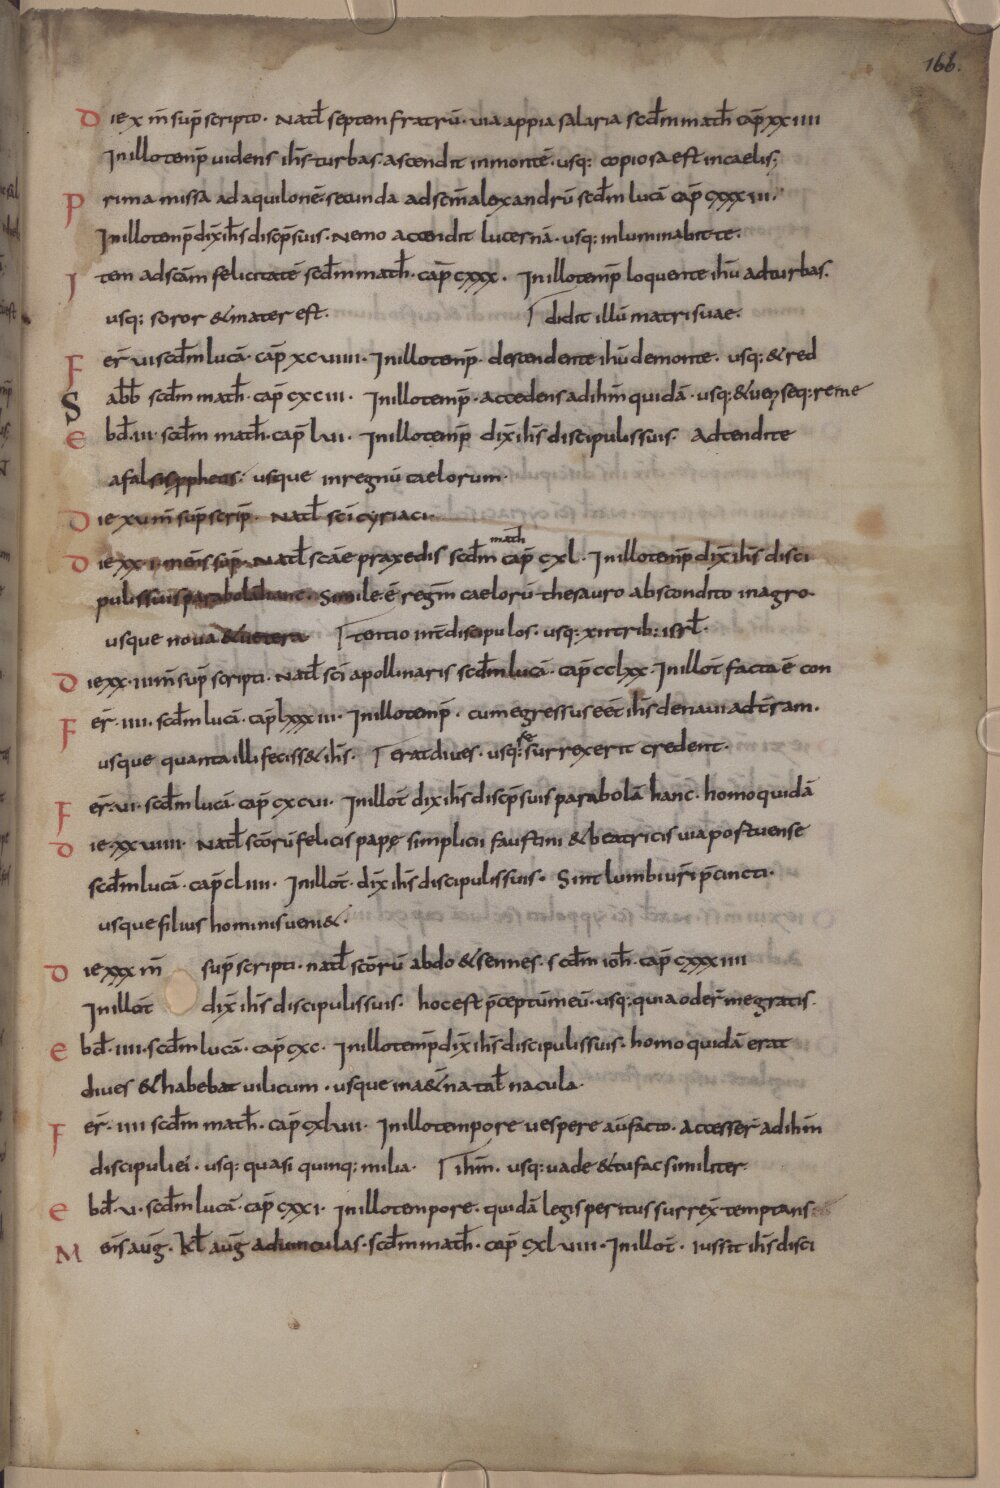 166.
Die x m̄ sup̄ scripto. Natł septem fratrū. via appia salaria scd̄m math̄ cap̄ xxiiii
In illo temp̄ uidens ih̄s turbas. ascendit in montē. usq: copiosa est in caelis;
Prima missa ad aquilonē. secunda ad sc̄m alexandrū scd̄m lucā cap̄ cxxxiii.
In illo temp̄ dix̄ ih̄s discip̄ suis. Nemo accendit lucernā. usq: inluminabit te.
Item ad sc̄am felicitatē scd̄m math̄. cap̄ cxxx. In illo temp̄ loquente ih̄u ad turbas.
usq: soror & mater est. T didit illū matri suae.
Fer̄ vi scd̄m lucā. cap̄ xcviiii. In illo temp̄. descendente ih̄u de monte. usq: & red
Sabb̄ scd̄m math̄. cap̄ cxciii. In illo temp̄. accedens ad ih̄m quidā. usq: & ueni seq:re me
ebd̄. iii. scd̄m math̄. cap̄ lvii. In illo temp̄ dix̄ ih̄s discipulis suis. Adtendite
a falsis pphetis. usque in regnū caelorum.
Die xv m̄ sup̄ scrip̄. Natł sc̄i cyriaci.
Die xx. i. mens̄ sup̄. Natł sc̄ae praxedis scd̄m math cap̄ cxl. In illo temp̄ dix̄ ih̄s disci
pulis suis parabolā hanc. Simile ē regn̄m caelorū thesauro abscondito in agro.
usque noua & uetera T tontio int̄ discipulos. usq: xii trib: isrł.
Die xx. iii m̄ sup̄ scripti. Natł sc̄i apollinaris scd̄m lucā. cap̄ cclxx. In illot̄ facta ē con
Fer̄. iiii. scd̄m lucā. cap̄ lxxxiii. In illo temp̄. cum egressus eet̄ ih̄s de naui ad t̄ram.
usque quanta illi feciss& ih̄s. T erat diues. usq: se surrexerit credent.
Fer̄. vi. scd̄m lucā. cap̄ cxcvi. In illot̄ dix̄ ih̄s discip̄ suis parabolā hanc. homo quidā
Die. xxviiii. Natł sc̄orū felicis papę simplicii faustini & beatricis uia postuense
scd̄m lucā. cap̄ cliiii. In illot̄. dix̄ ih̄s discipulis suis. Sint lumbi ur̄i p̄cincti.
usque filius hominis ueni&.
Die xxx m̄ sup̄ scripti. natł sc̄orū abdo & sennes. scd̄m ioh̄. cap̄ cxxxiiii
In illot̄ dix̄ ih̄s discipulis suis. hoc est p̄ceptū meū. usq: quia oder̄ me gratis.
ebd̄. iiii. scd̄m lucā. cap̄ cxc. In illo temp̄ dix̄ ih̄s discipulis suis. homo quidā erat
diues & habebat uilicum. usque in a&̄na tab̄nacula.
Fer̄. iiii scd̄m math̄. cap̄ cxlvii. In illo tempore uespere aū facto. accesser̄ ad ih̄m
discipuli ei. usq: quasi quinq: milia. T ih̄m. usq: uade & tu fac similiter.
ebd̄. v. scd̄m lucā. cap̄ cxxi. In illo tempore. quidā legis peritus surrex̄ temptans
Mens̄ auḡ. Kł auḡ ad uinculas. scd̄m math̄. cap̄ cxlviiii. In illot̄. iussit ih̄s disci